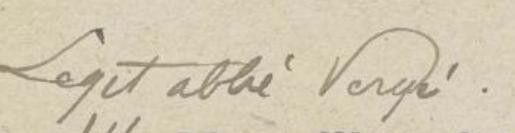 Leget abbé Vergé.